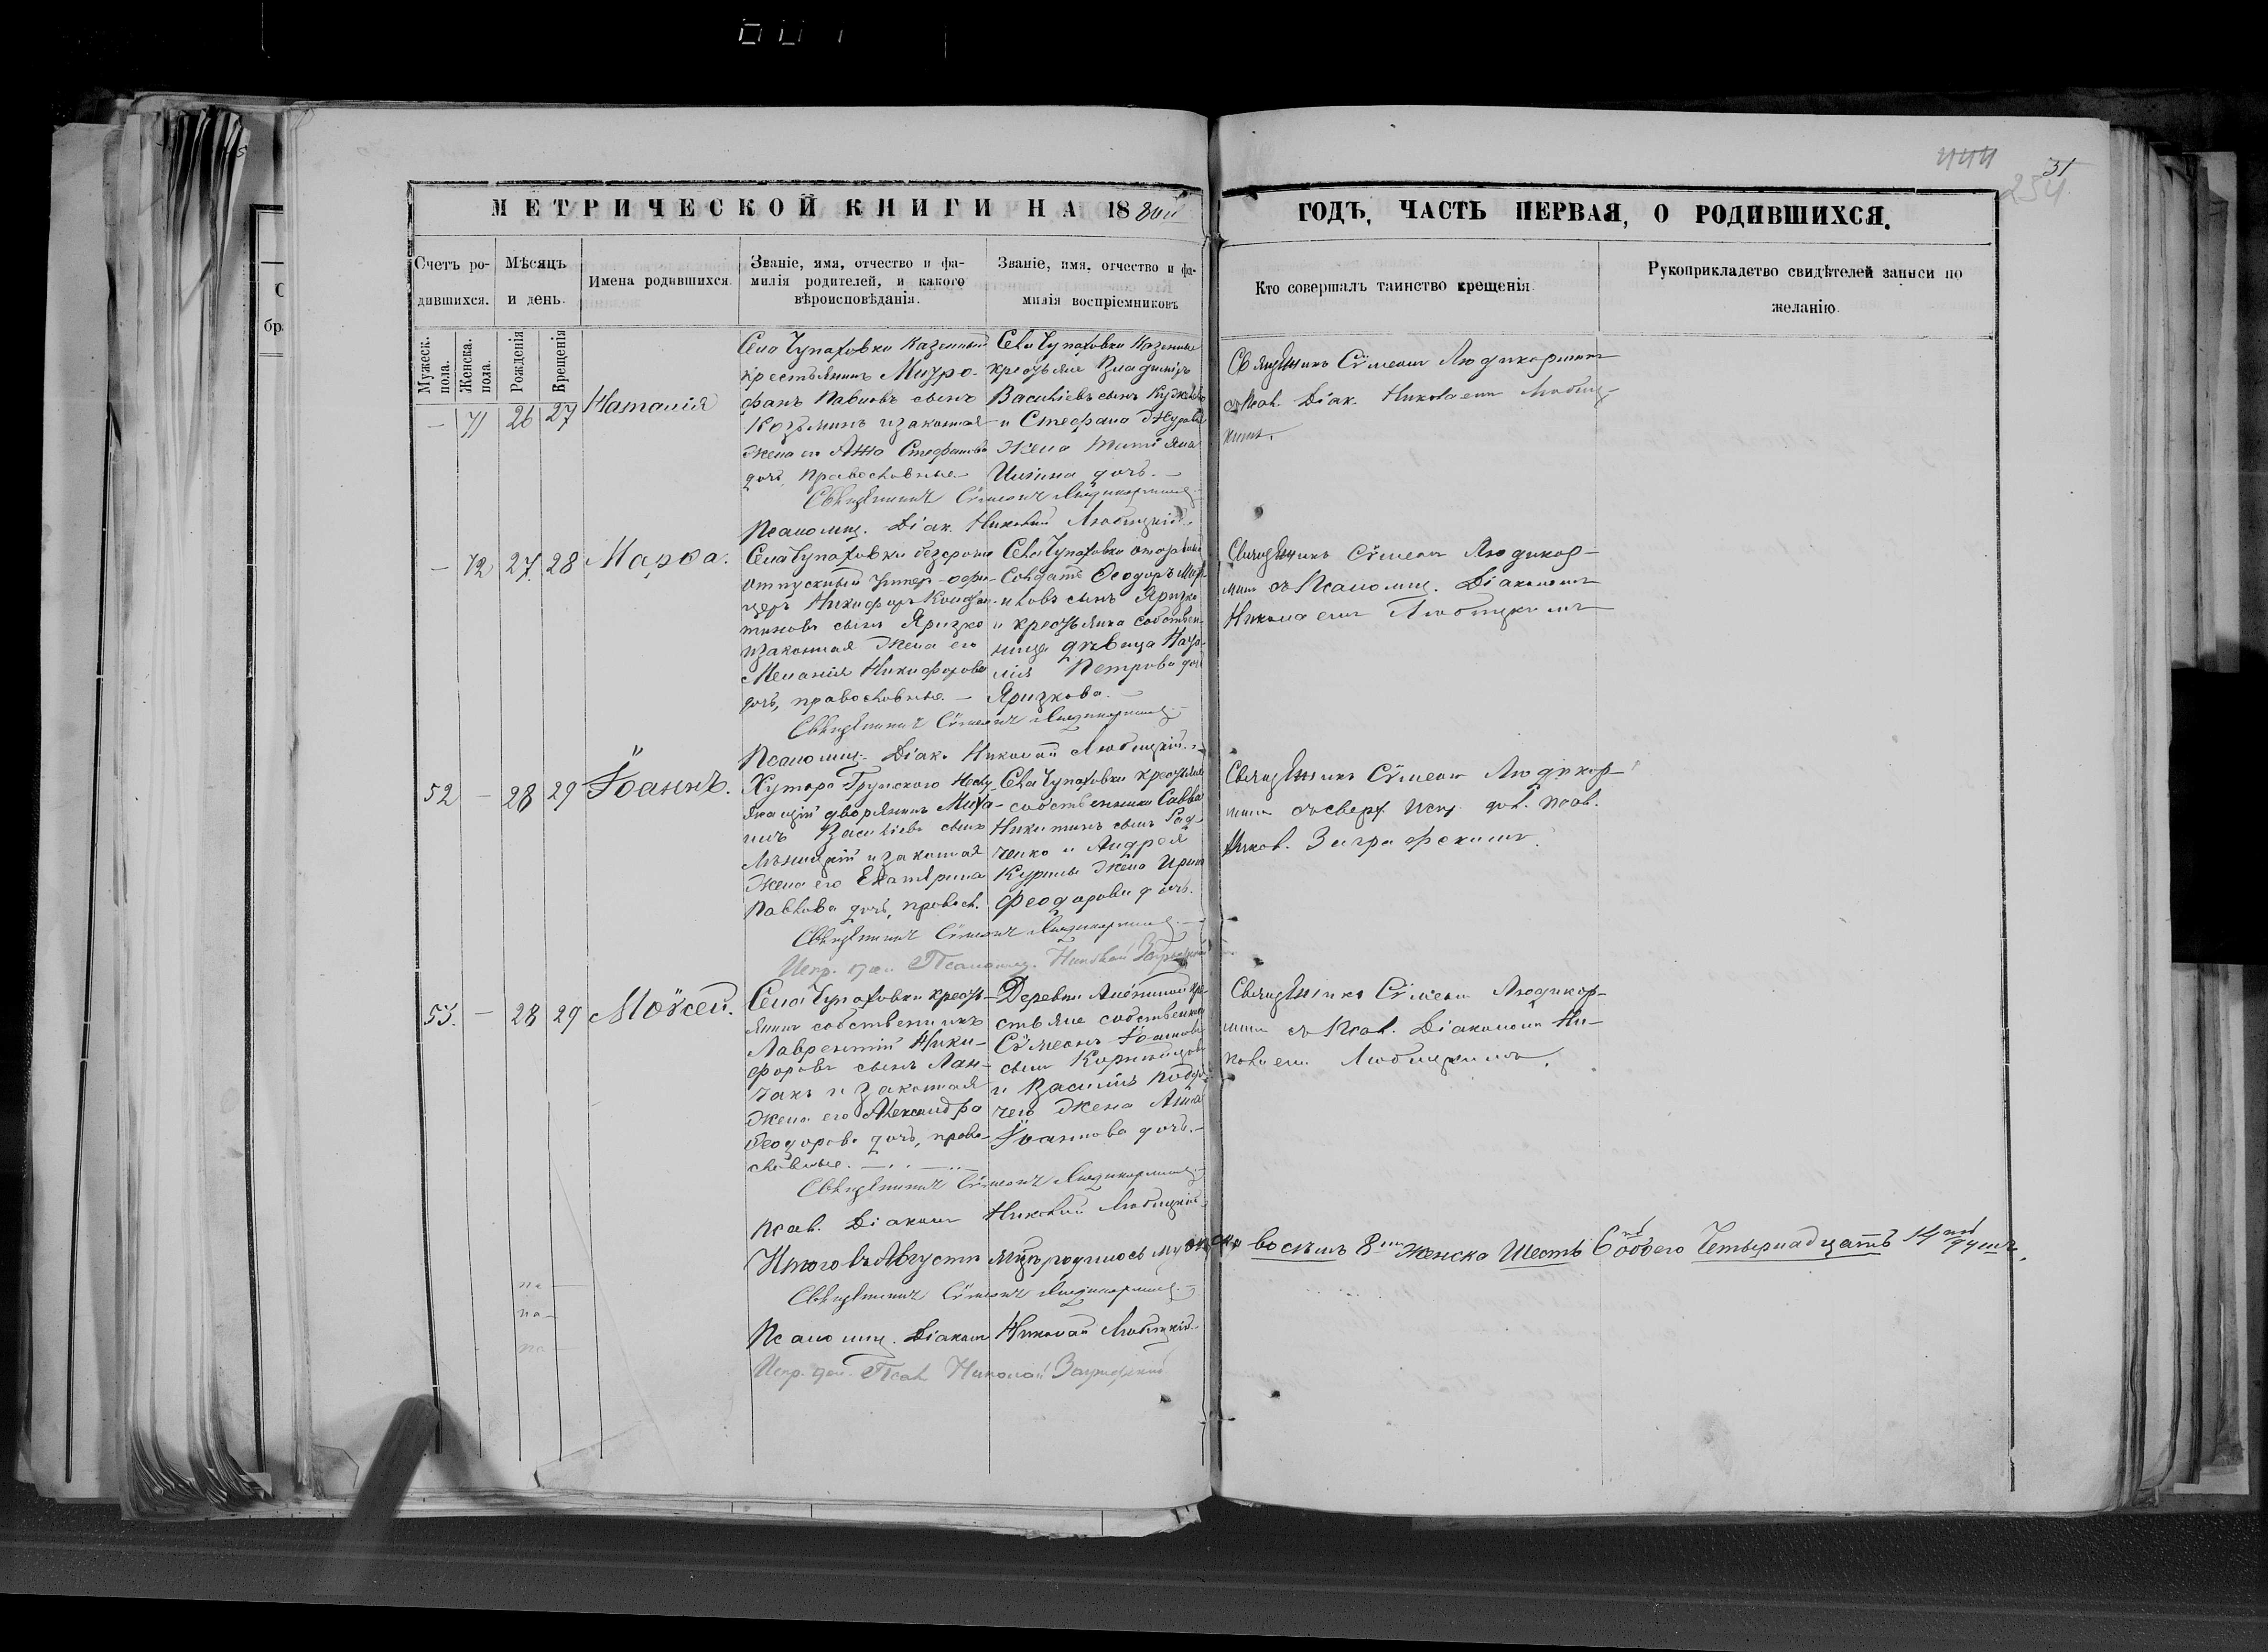 444
31
254
МЕТРИЧЕСКОЙ КНИГИ НА 1880й
ГОДЪ, ЧАСТЬ ПЕРВАЯ, О РОДИВШИХСЯ.
Счетъ ро-
дившихся.
Мужеск. пола.
Женска. пола.
Мѣсяцъ
и день.
Рожденія
Крещенія
Имена родившихся
Званіе, имя, отчество и фа-
милія родителей, и какого
вѣроисповѣданія.
Званіе, имя, отчество и фа-
милія воспріемниковъ
Кто совершалъ таинство крещенія.
Рукоприкладство свидѣтелей записи по
желанію.
— 71 26 27 Наталія
Села Чупаховки казенный
крестьянинъ Митро-
фанъ Павловъ сынъ
Козьминъ и законная
жена его Анна Стефанова
дочь, православные. —
Села Чупаховки казенные
крестьяне Владиміръ
Василіевъ сынъ
и Стефана
жена Татіяна
дочь. —
Священникъ Сѵмеонъ
Псаломщ. Діак. Николай Любицкій.
Священникъ Сѵмеонъ
съ Псал. Діак. Николаемъ Любиц-
кимъ.
— 72 27 28 Марѳа.
Села Чупаховки безсрочно
отпускный унтер-офи-
церъ Никифоръ Констан-
тиновъ сынъ Яризко
и законная жена его
Меланія Никифорова
дочь, православные. —
Села Чупаховки отставный
солдатъ Ѳеодоръ
сынъ Яризко
и крестьянка собствен-
ница дѣвица Ната-
лія Петрова дочь
Яризкова. —
Священникъ Сѵмеонъ
Псаломщ. Діак. Николай Любицкій.
Священникъ Сѵмеонъ
съ Псаломщ. Діакономъ
Николаемъ Любицкимъ
52 — 28 29 Іоаннъ.
Хутора Грунского
дворянинъ Миха-
илъ Василіевъ сынъ
и законная
жена его Екатерина
Павлова дочь, правосл.
Села Чупаховки крестьяне
собственники Савва
Никитинъ сынъ Рад-
ченко и Андрея
жена Ирина
Феодорова дочь.
Священникъ Сѵмеонъ
Испр. дол. Псаломщ. Николай Заграфскій
Священникъ Сѵмеонъ
съ сверх. Исп. дол. Псал.
Никол. Заграфскимъ.
53. — 28 29 Моѵсей.
Села Чупаховки кресть-
янинъ собственникъ
Лаврентій Ники-
форовъ сынъ
и законная
жена его Александра
Ѳеодорова дочь, право-
славные. —
Деревни кре-
стьяне собственники
Сѵмеонъ Іоанновъ
сынъ
и Василія
жена Анна
Іоаннова дочь. —
Священникъ Сѵмеонъ
Псал. Діаконъ Николай Любицкій.
Священникъ Сѵмеонъ
съ Псал. Діакономъ Ни-
колаемъ Любицкимъ.
Итого въ Августѣ мцѣ родилось мужеска восемь 8 женска шесть 6 обоего четырнадцать 14 душъ.
Священникъ Сѵмеонъ
Псаломщ. Діаконъ Николай Любицкій.
Испр. дол. Псал. Николай Заграфскій